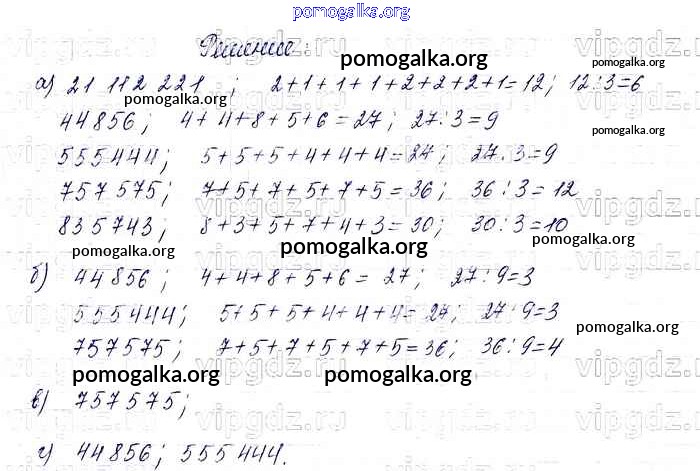 pomogalka.org
Решение:
pomogalka.org
а) 21 112 221 ; 2+1+1+1+2+2+2+1=12; 12:3=6
pomogalka.org
44856; 4+4+8+5+6=27; 27:3=9
pomogalka.org
555444; 5+5+5+4+4+4=27; 27:3=9
757575; 7+5+7+5+7+5=36; 36:3=12
835743; 8+3+5+7+4+3=30; 30:3=10
pomogalka.org
pomogalka.org
pomogalka.org
б) 44856; 4+4+8+5+6=27; 27:9=3
555444; 5+5+5+4+4+4=27; 27:9=3
pomogalka.org
757575; 7+5+7+5+7+5=36; 36:9=4
pomogalka.org
pomogalka.org
в) 757575;
г) 44856; 555444.
vipgdz.ru